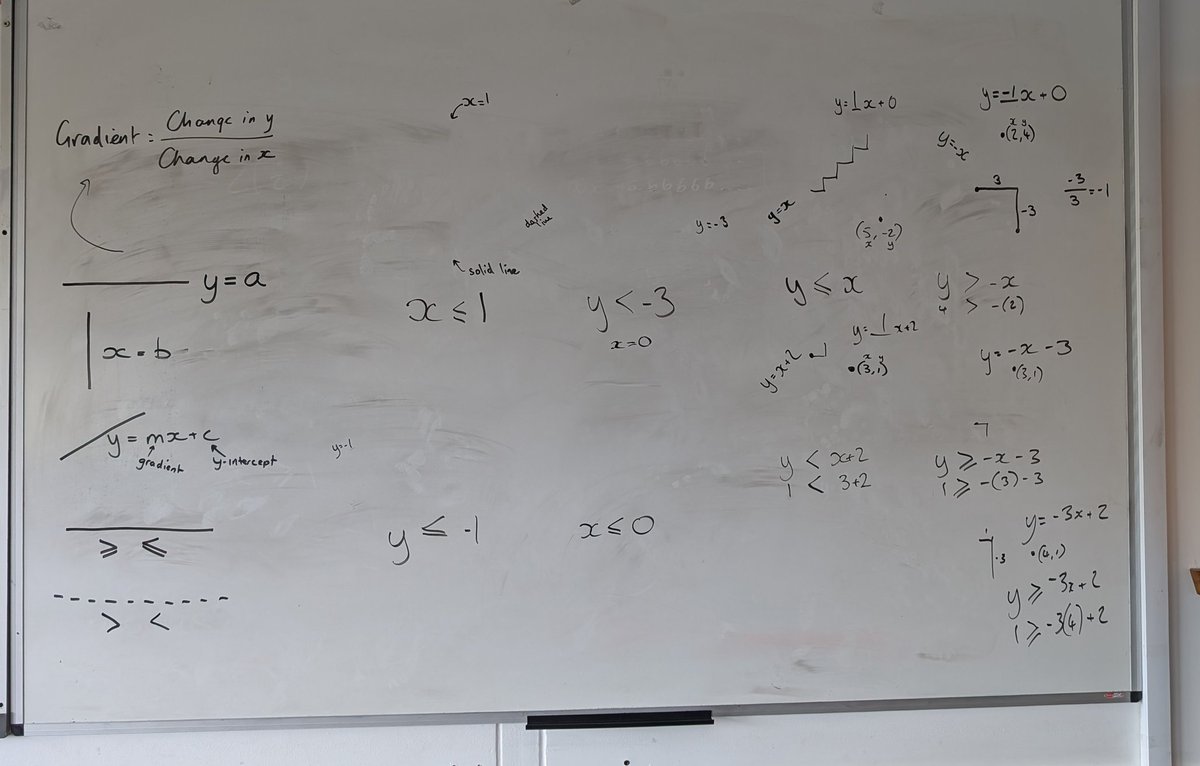 Gradient = Change in y
Change in x
y = a
x = b
y = mx + c
gradient
y-intercept
⩾ ⩽
> <
x=1
dashed line
solid line
x ≤ 1
y=-3
y < -3
x=0
y=-1
y ≤ -1
x ≤ 0
y=1x+0
y=x
(5, -2)
x y
y ≤ x
y=1x+2
y=x+2
x y
(3,1)
y < x+2
1 < 3+2
y=-1x+0
x y
(2,4)
y=-x
3
-3
-3/3=-1
y > -x
4 > -(2)
y=-x-3
(3,1)
y ⩾ -x-3
1 ⩾ -(3)-3
y=-3x+2
-3
(4,1)
y ⩾ -3x+2
1 ⩾ -3(4)+2